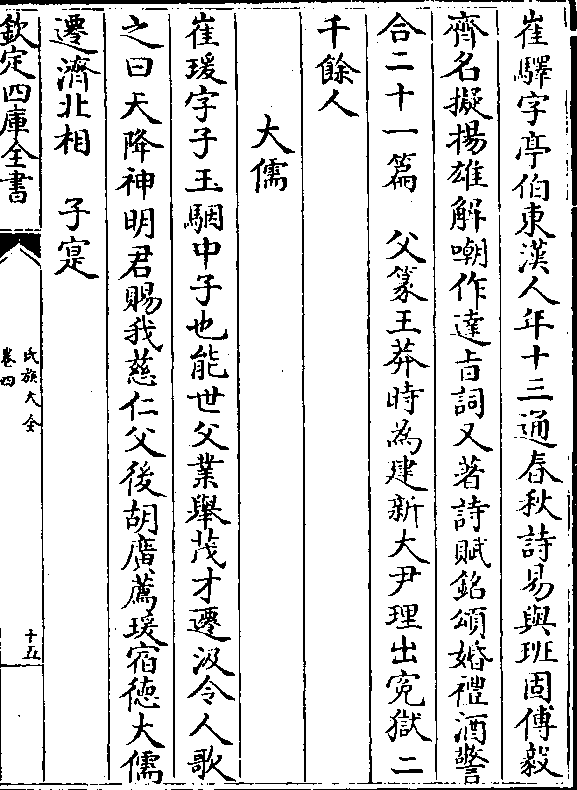 崔駰字亭伯東漢人年十三通春秋詩易與班固傅毅
齊名擬揚雄解嘲作達㫖詞又著詩賦銘頌婚禮酒警
合二十一篇　父篆王莽時為建新大尹理出寃獄二
千餘人
大儒
崔瑗字子玉駰中子也能世父業舉茂才遷汲令人歌
之曰天降神明君賜我慈仁父後胡廣薦瑗宿徳大儒
遷濟北相　子寔
欽定四庫全書
氏族大全
卷四
十五